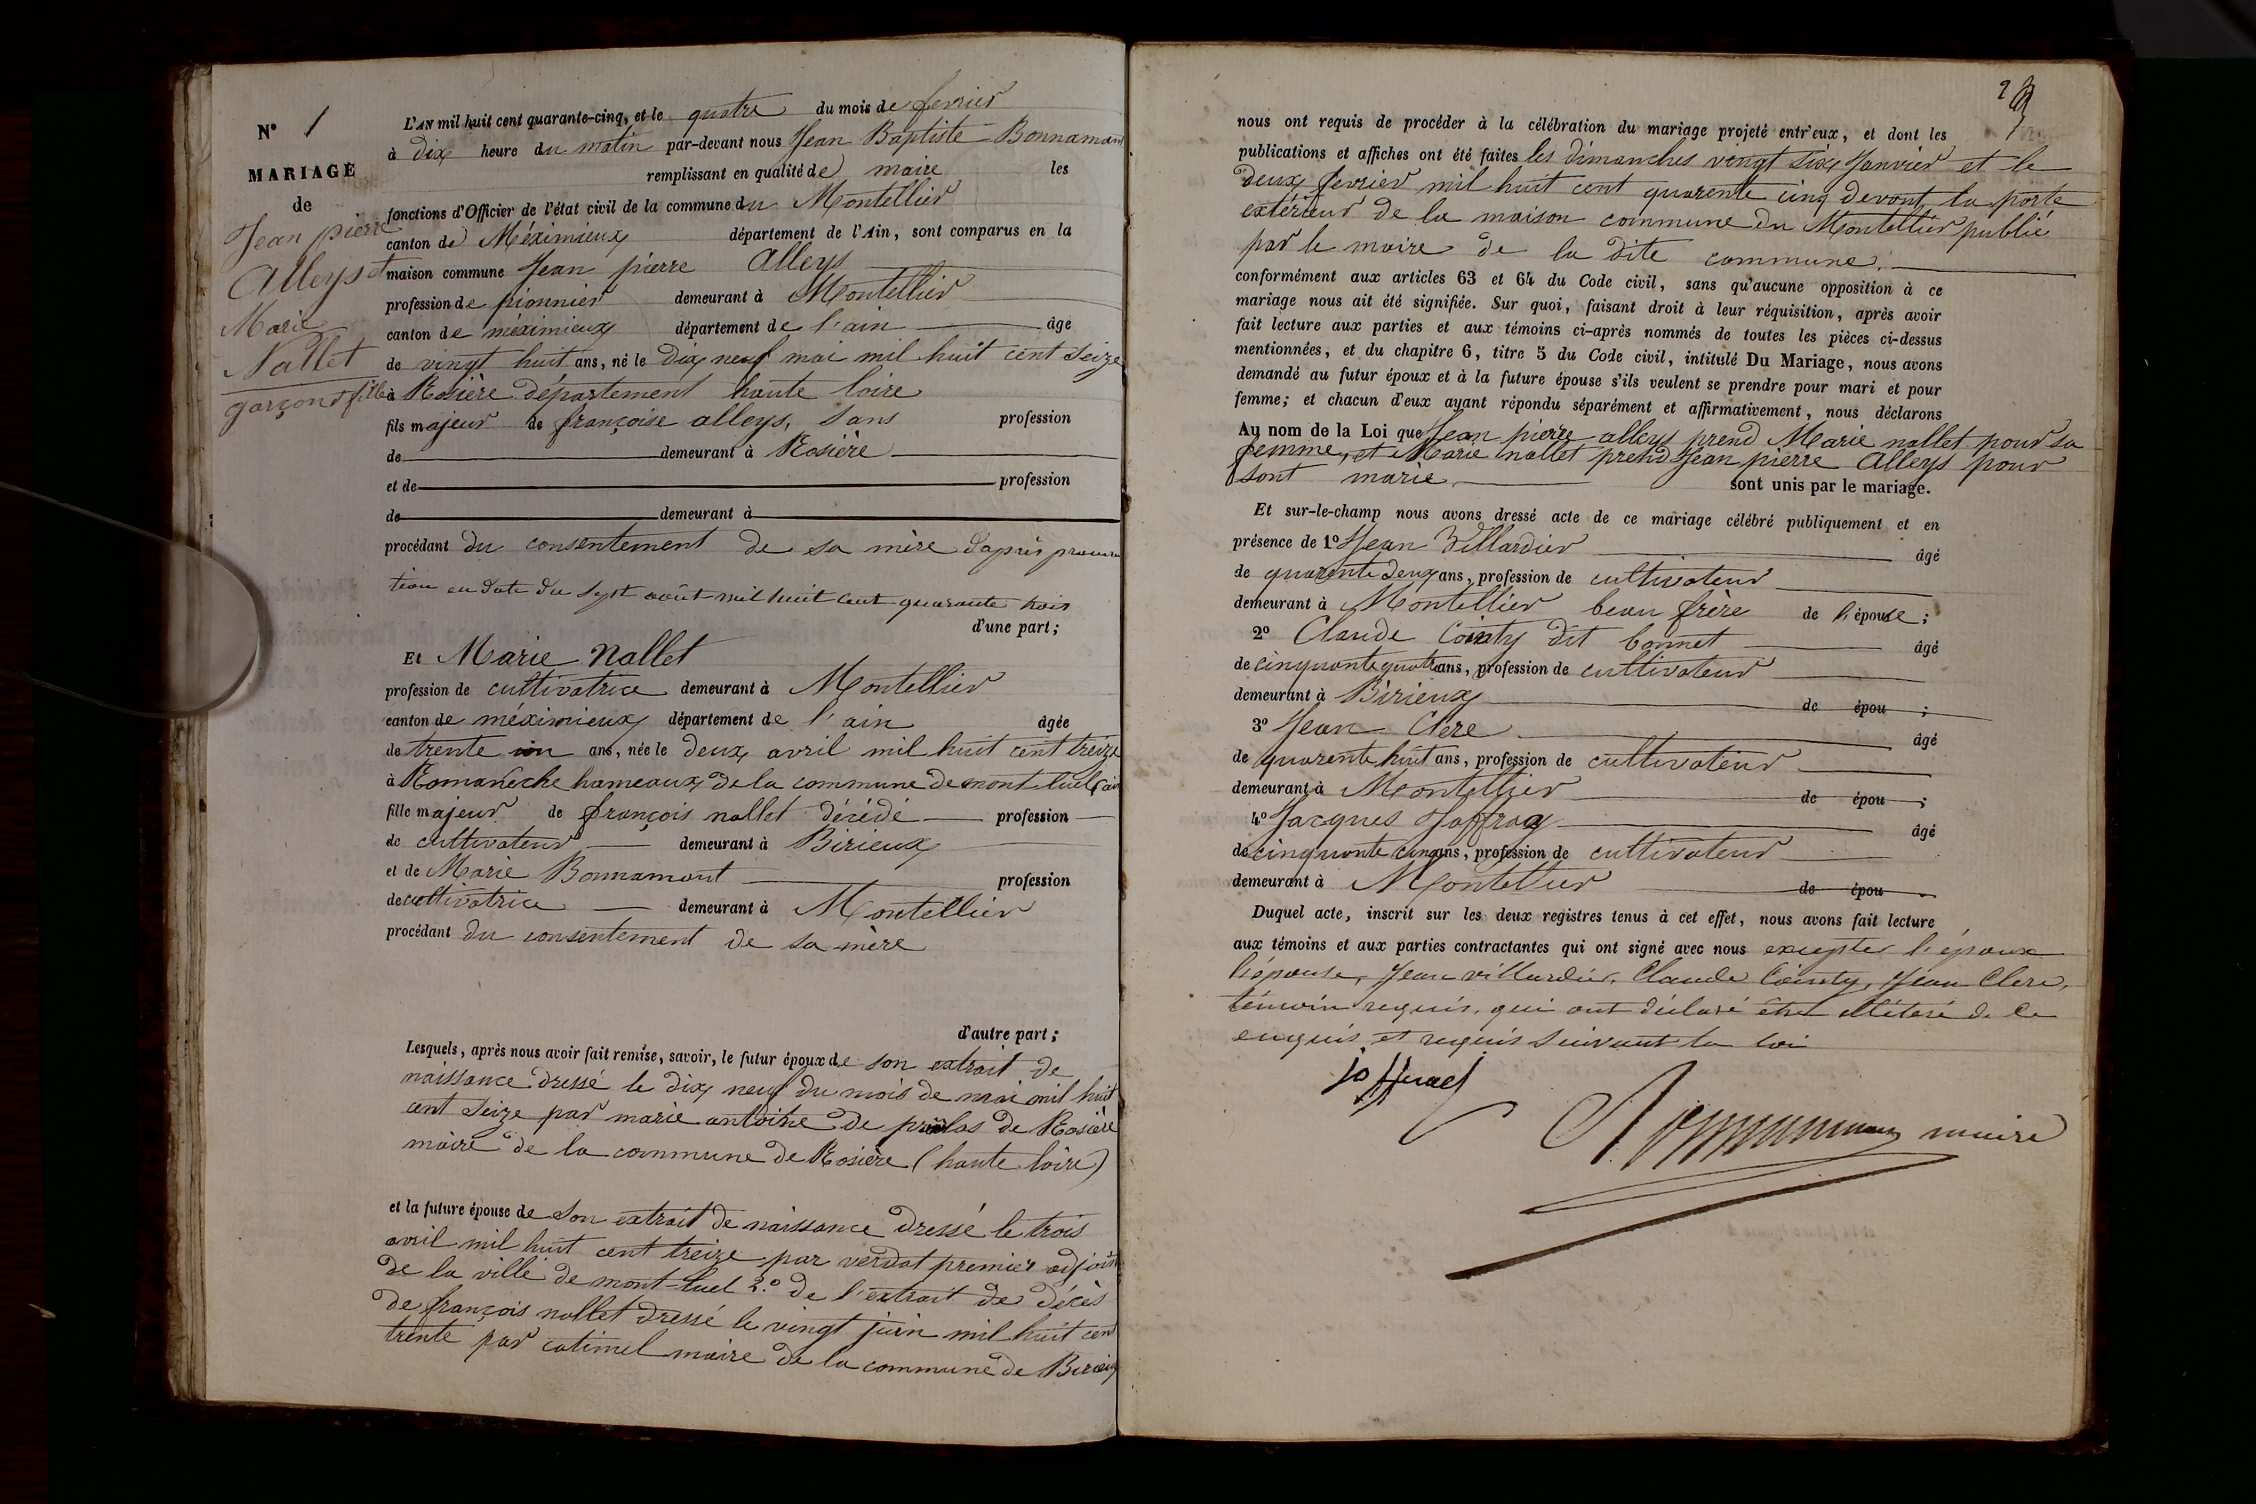 N° 1
MARIAGE
de
Jean pierre
Alleys et
Marie
Nallet
garçon & fille
L'AN mil huit cent quarante-cinq, et le quatre du mois de fevrier
à dix heure du matin par-devant nous Jean Baptiste Bonnamant
remplissant en qualité de maire les
fonctions d'Officier de l'état civil de la commune du Montellier
canton de Méximieux département de l'Ain, sont comparus en la
maison commune Jean pierre Alleys
profession de pionnier demeurant à Montellier
canton de méximieux département de l'ain âgé
de vingt huit ans, né le dix neuf mai mil huit cent seize
à Rosière département haute loire
fils majeur de françoise alleys, sans profession
de demeurant à Rosière
et de profession
de demeurant à
procédant du consentement de sa mère d'après procura
tion en date du sept août mil huit cent quarante trois
d'une part;
Et Marie Nallet
profession de cultivatrice demeurant à Montellier
canton de méximieux département de l'ain âgée
de trente un ans, née le deux avril mil huit cent treize
à Romanèche hameaux de la commune de mont-luel (ain
fille majeur de françois nallet décédé profession
de cultivateur demeurant à Birieux
et de Marie Bonnamont profession
de cultivatrice demeurant à Montellier
procédant du consentement de sa mère
d'autre part;
Lesquels, après nous avoir fait remise, savoir, le futur époux de son extrait de
naissance dressé le dix neuf du mois de mai mil huit
cent seize par marie antoine de de Rosière
maire de la commune de Rosière (haute loire)
et la future épouse de son extrait de naissance dressé le trois
avril mil huit cent treize par verdat premier adjoint
de la ville de mont-luel 2° de l'extrait de décès
de françois nallet dressé le vingt juin mil huit cent
trente par catimel maire de la commune de Birieux
nous ont requis de procéder à la célébration du mariage projeté entr'eux, et dont les
publications et affiches ont été faites les dimanches vingt six Janvier et le
deux fevrier mil huit cent quarente cinq devant la porte
extérieur de la maison commune du Montellier publié
par le maire de la dite commune.
conformément aux articles 63 et 64 du Code civil, sans qu'aucune opposition à ce
mariage nous ait été signifiée. Sur quoi, faisant droit à leur réquisition, après avoir
fait lecture aux parties et aux témoins ci-après nommés de toutes les pièces ci-dessus
mentionnées, et du chapitre 6, titre 5 du Code civil, intitulé Du Mariage, nous avons
demandé au futur époux et à la future épouse s'ils veulent se prendre pour mari et pour
femme; et chacun d'eux ayant répondu séparément et affirmativement, nous déclarons
Au nom de la Loi que Jean pierre alleys prend Marie nallet pour sa
femme, et Marie nallet prend Jean pierre Alleys pour
sont marie sont unis par le mariage.
Et sur-le-champ nous avons dressé acte de ce mariage célébré publiquement et en
présence de 1° Jean Villardier âgé
de quarente deux ans, profession de cultivateur
demeurant à Montellier beau frère de l'épouse;
2° Claude Cointy dit bonnet âgé
de cinquante quatre ans, profession de cultivateur
demeurant à Birieux de épou ;
3° Jean Clere âgé
de quarente huit ans, profession de cultivateur
demeurant à Montellier de épou ;
4° Jacques Joffray âgé
de cinquante cinq ans, profession de cultivateur
demeurant à Montellier de épou .
Duquel acte, inscrit sur les deux registres tenus à cet effet, nous avons fait lecture
aux témoins et aux parties contractantes qui ont signé avec nous excepter l'époux
l'épouse, Jean villardier, Claude Cointy, Jean Clere,
témoin requis, qui ont déclaré être illiteré de ce
enquis et requis suivant la loi
maire